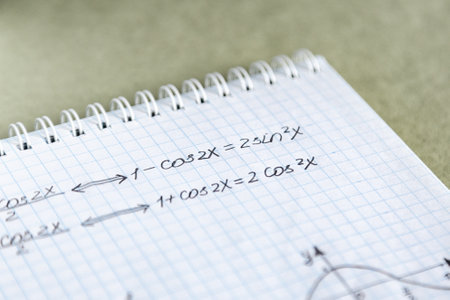 cos2x/2 ⟷ 1-cos2x=2sin²x
cos2x/2 ⟷ 1+cos2x=2cos²x
y